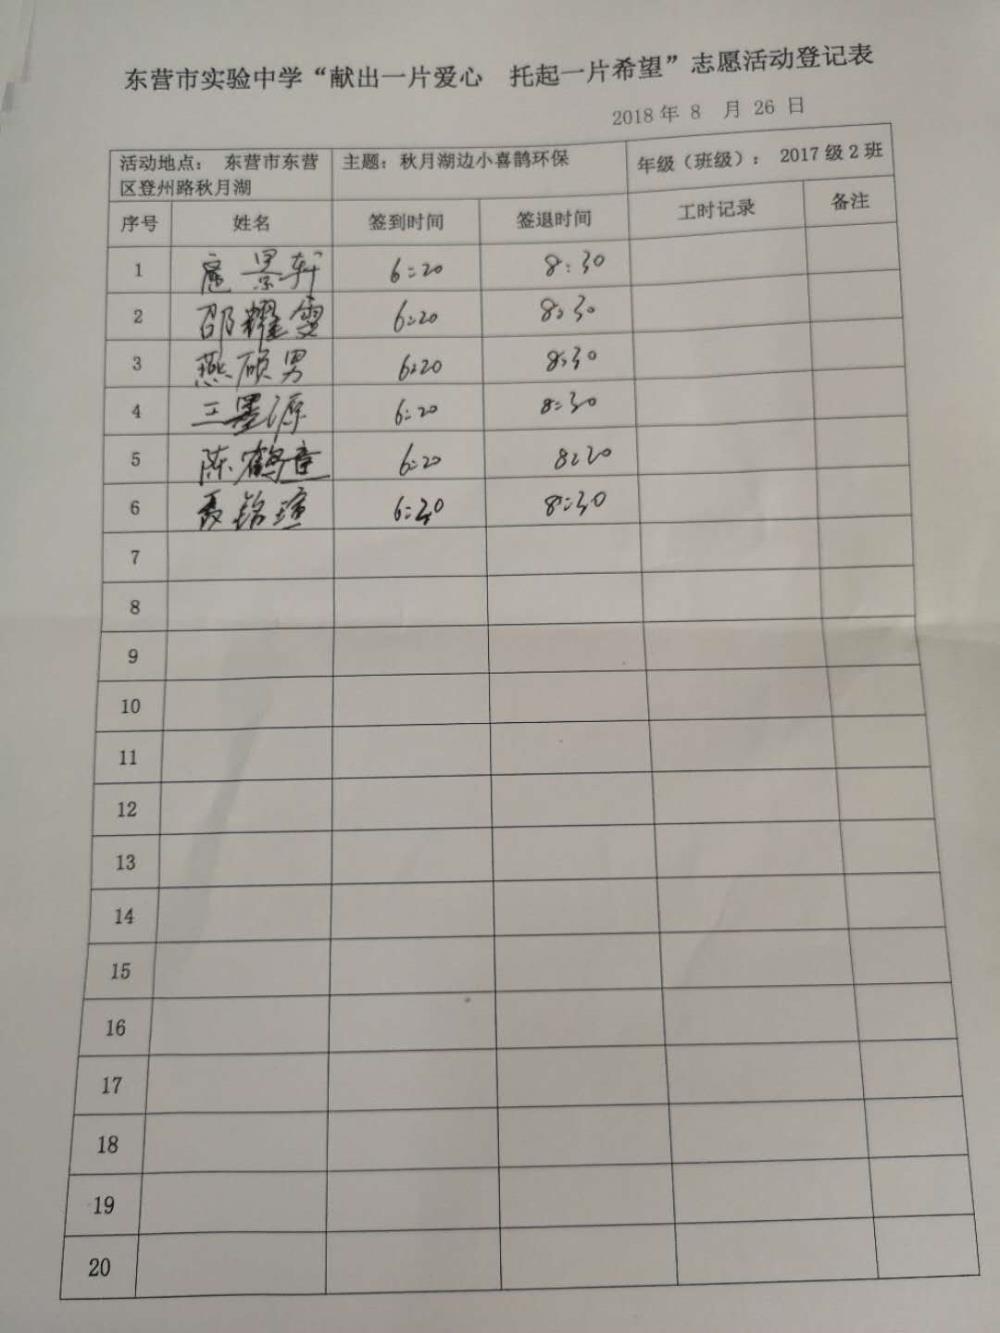 东营市实验中学“献出一片爱心 托起一片希望”志愿活动登记表
2018 年 8 月 26 日
活动地点： 东营市东营区登州路秋月湖 主题：秋月湖边小喜鹊环保 年级（班级）： 2017 级 2 班
序号 姓名 签到时间 签退时间 工时记录 备注
1 扈景轩 6:20 8:30
2 邵耀雯 6:20 8:30
3 燕硕男 6:20 8:30
4 王墨源 6:20 8:30
5 陈鹤童 6:20 8:30
6 聂铭瑄 6:20 8:30
7
8
9
10
11
12
13
14
15
16
17
18
19
20